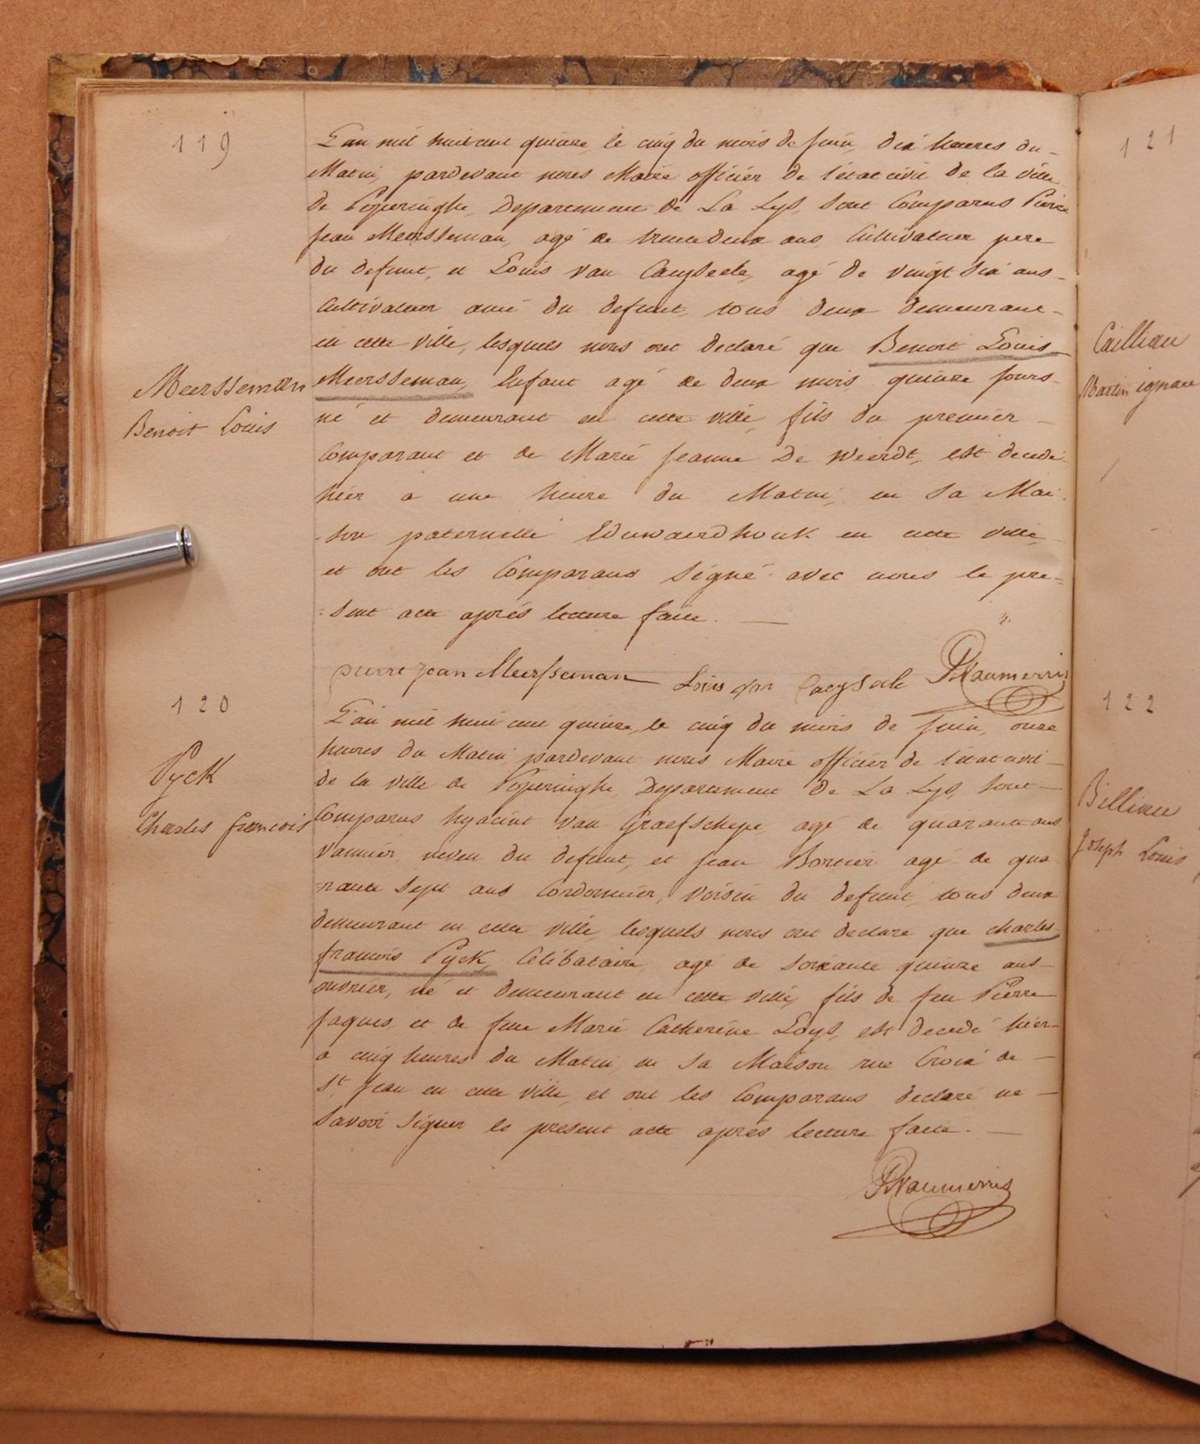 119
L'an mil huit cent quinze, le cinq du mois de Juin, dix heures du
Matin, pardevant nous Maire officier de l'état civil de la ville
de Poperinghe, Departement de La Lys, sont Comparus Pierre
Jean Meersseman, agé de trente deux ans Cultivateur pere
du defunt, et Louis van Cayseele, agé de vingt six ans
Cultivateur ami du defunt, tous deux demeurant
en cette ville, lesquels nous ont declaré que Benoit Louis
Meersseman, Enfant agé de deux mois quinze jours
né et demeurant en cette ville, fils du premier
Comparant et de Marie Jeanne De Weerdt, est decedé
hier à une heure du Matin, en sa Mai-
-son paternelle Eduwaerdhouk en cette ville,
et ont les Comparans signé avec nous le pre-
-sent acte après lecture faite.
Meersseman
Benoit Louis
pierre jean Meersseman Louis van Cayseele
120
L'an mil huit cent quinze, le cinq du mois de Juin, onze
heures du Matin, pardevant nous Maire officier de l'état civil
de la ville de Poperinghe, Departement de La Lys, sont
Comparus hyacint van Graefschepe, agé de quarante ans
Vannier, neveu du defunt, et Jean Bortier agé de qua
-rante sept ans Cordonnier, voisin du defunt, tous deux
demeurant en cette ville, lesquels nous ont declaré que charles
francois Pyck, Célibataire, agé de soixante quinze ans
ouvrier, né et demeurant en cette ville, fils de feu Pierre
Jaques, et de feue Marie Catherine Loys, est decedé hier
a cinq heures du Matin, en sa Maison rue Croix de
St Jean en cette ville, et ont les Comparans declaré ne
savoir signer le present acte après lecture faite.
Pyck
Charles francois
121
Caillieu
Martin ignace
122
Billiau
Joseph Louis